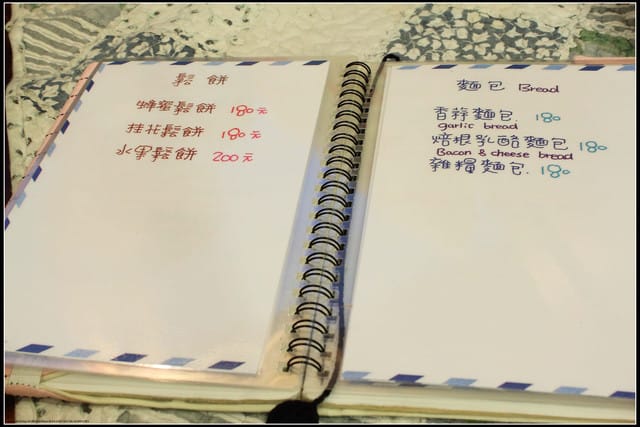 鬆餅
蜂蜜鬆餅 180元
桂花鬆餅 180元
水果鬆餅 200元
麵包 Bread
香蒜麵包. 180
garlic bread
焙根乳酪麵包 180
Bacon & cheese bread
雜糧麵包. 180